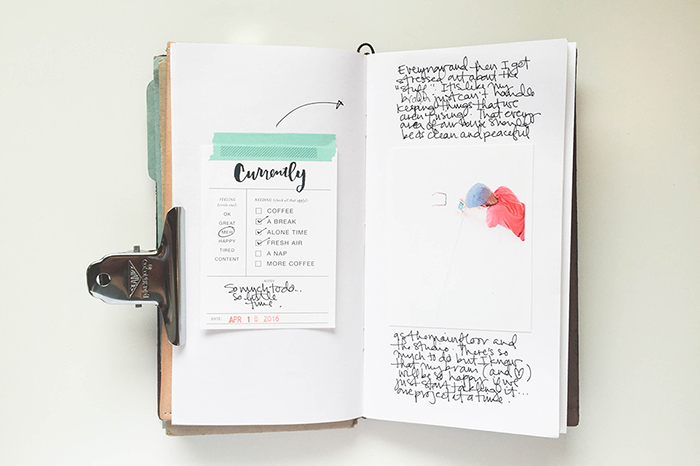 Currently
FEELING
(circle one):
OK
GREAT
MEH
HAPPY
TIRED
CONTENT
NEEDING (check all that apply):
COFFEE
A BREAK
ALONE TIME
FRESH AIR
A NAP
MORE COFFEE
NOTES
So much to do...
so little
time.
DATE: APR 2016
Every now and then I get
stressed out about the
"stuff". It's like my
brain just can't handle
keeping things that we
aren't using. That every
area of our house should
be as clean and peaceful
as the main floor and
the studio. There's so
much to do but I know
that my brain (and ♡)
will be so happy if we
just start tackling it...
one project at a time.